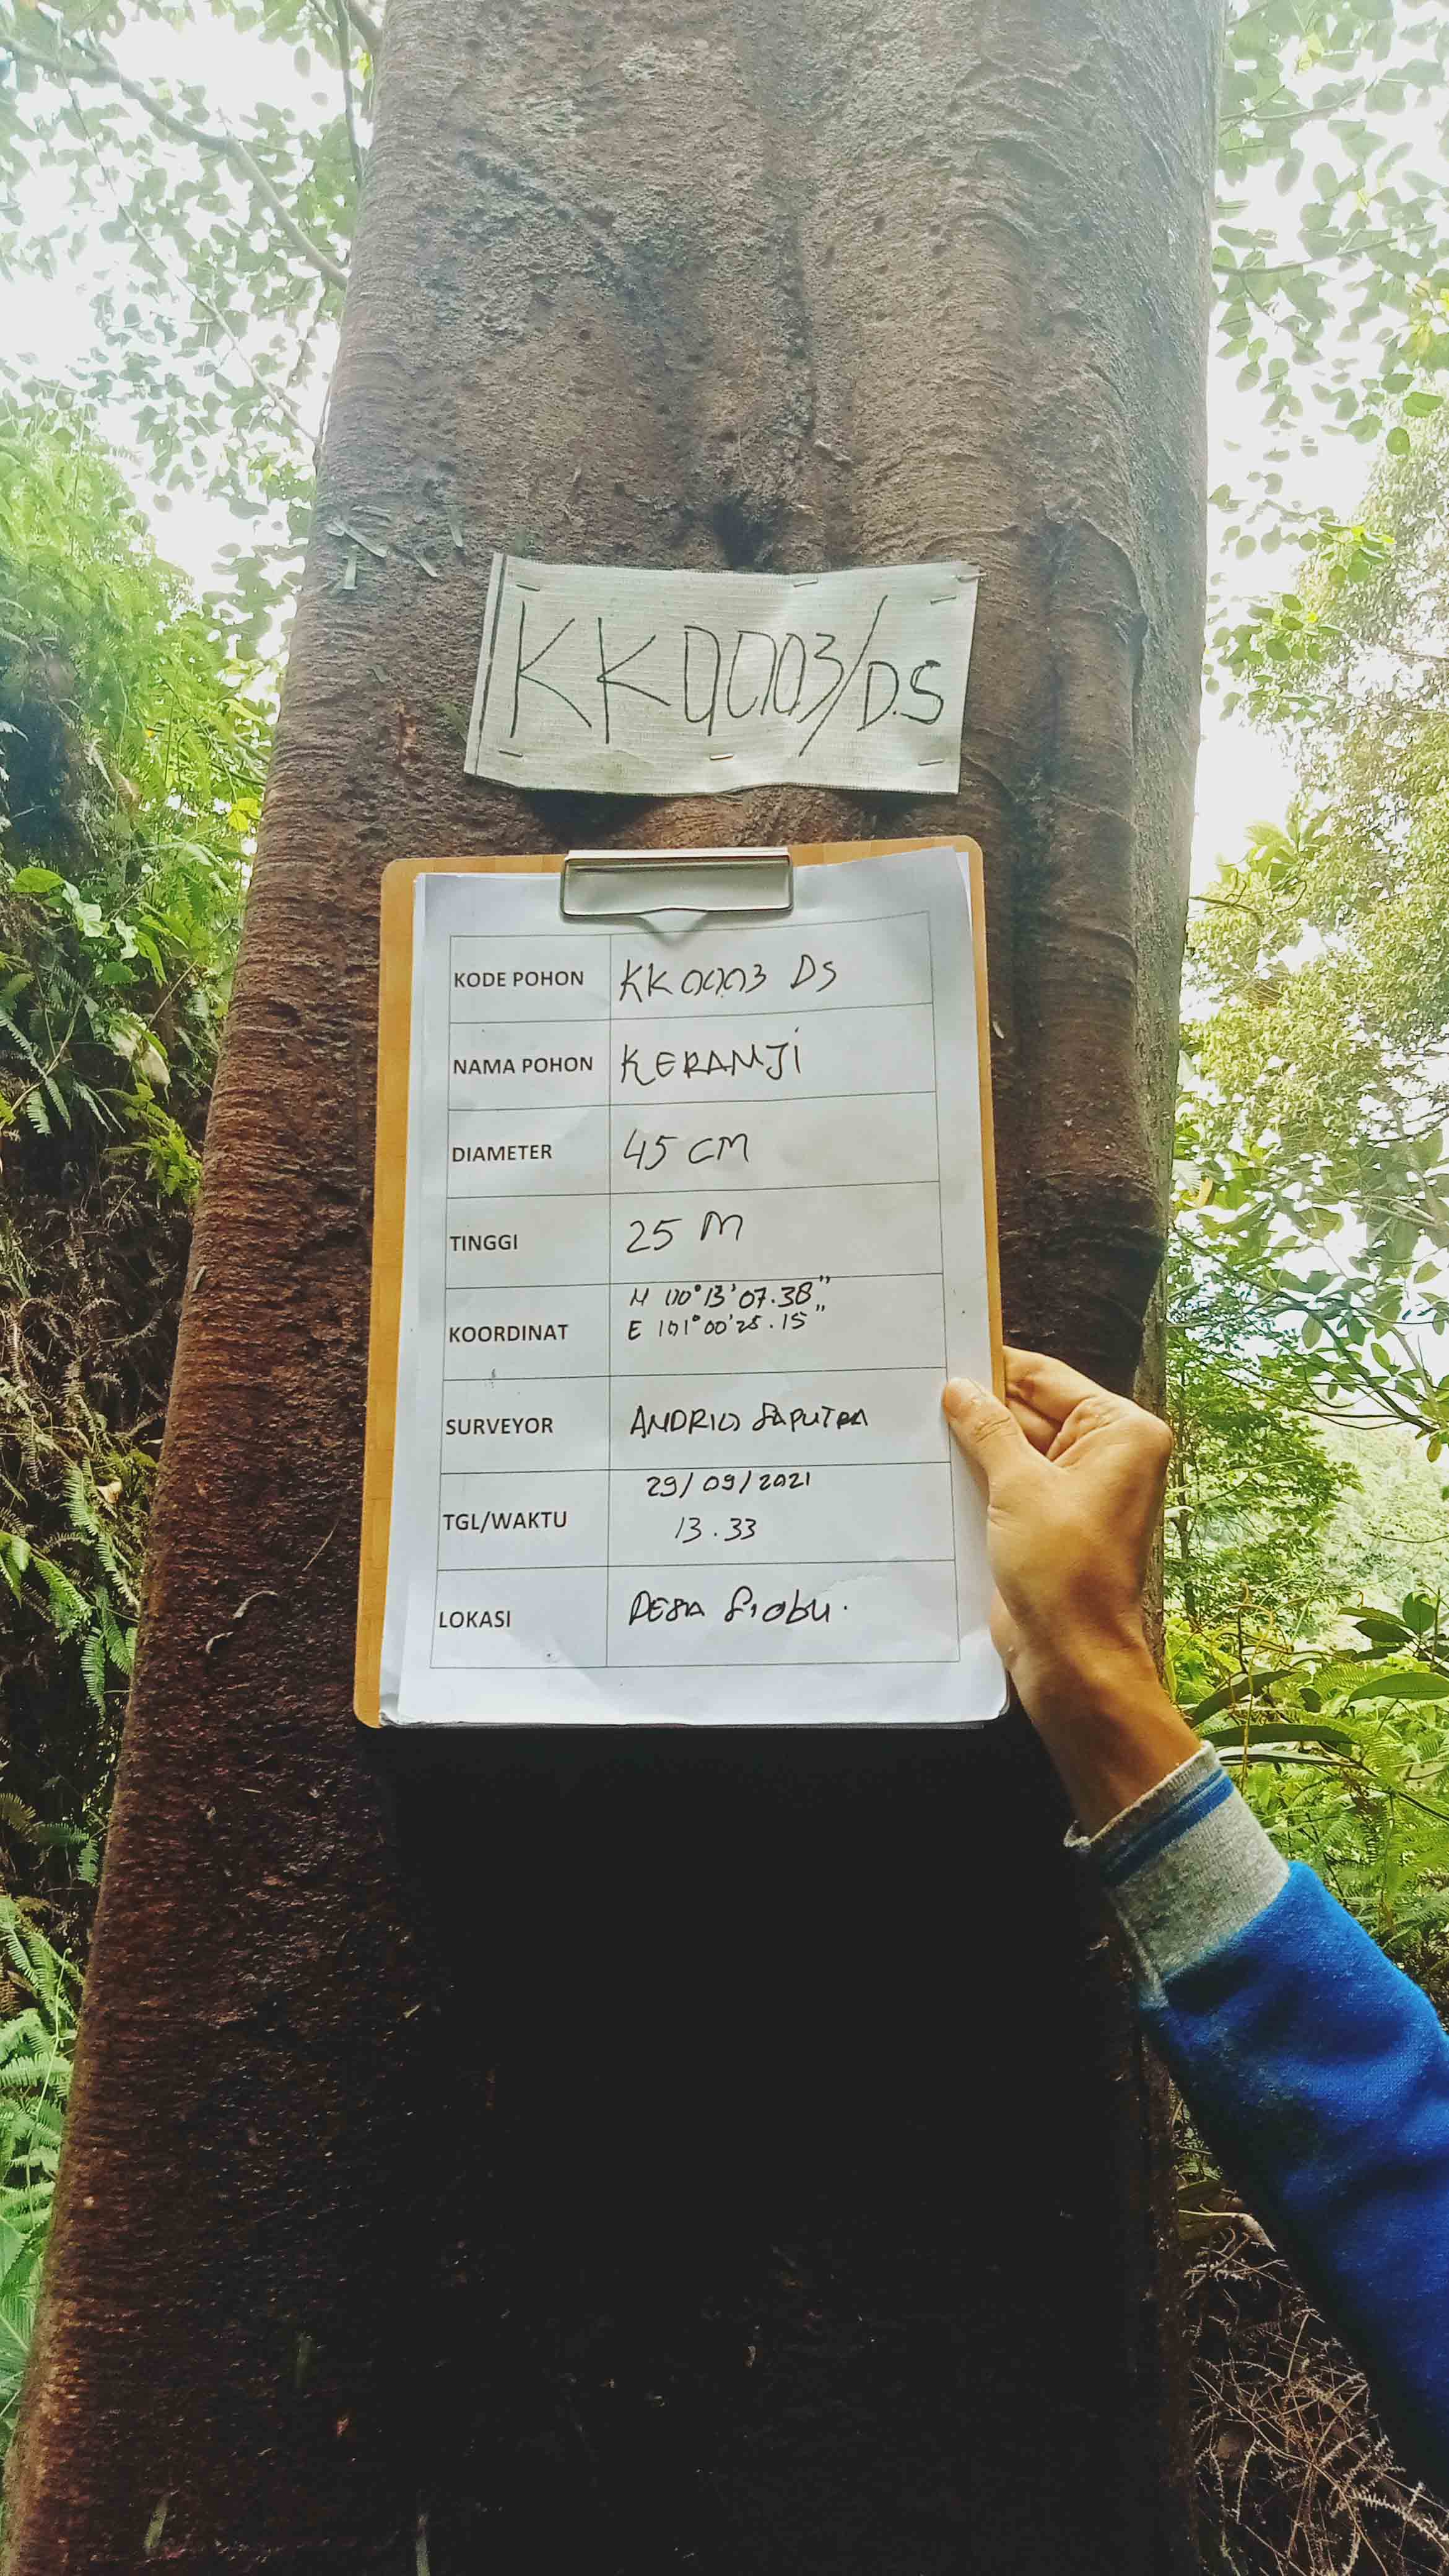 KK0003/D.S
KODE POHON KK0003 DS
NAMA POHON KERANJI
DIAMETER 45 CM
TINGGI 25 M
KOORDINAT N 00°13'07.38"
E 101°00'25.15"
SURVEYOR ANDRIO SAPUTRA
TGL/WAKTU 29/09/2021
13.33
LOKASI DESA Siabu.